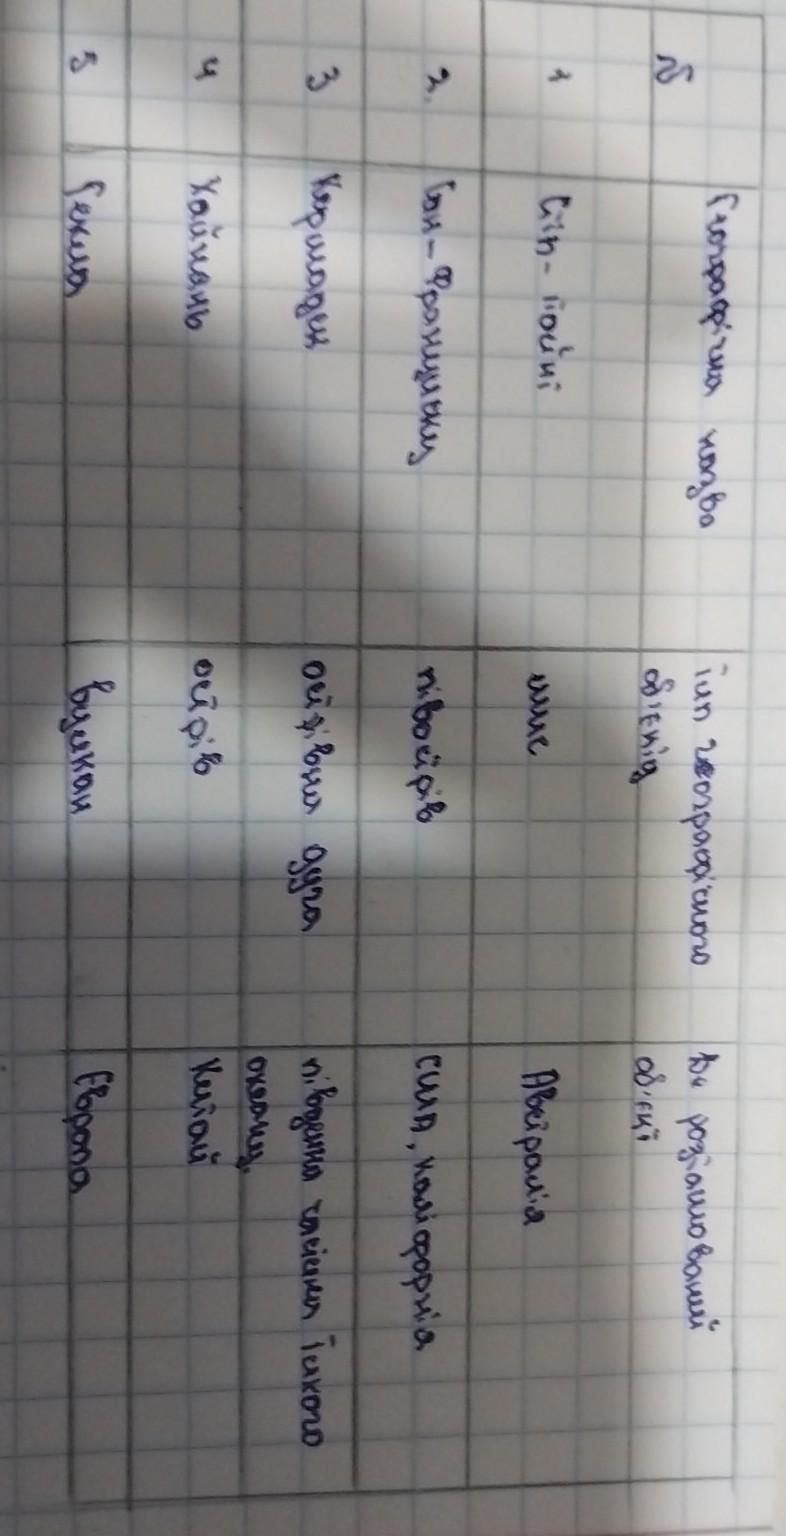 № Географічна назва Тип географічного Де розташований
об'єкта об'єкт
1 Стіп-Пойнт мис Австралія
2. Сан-Франциску півострів США, Каліфорнія
3 Кермадек острівна дуга південна частина Тихого
океану
4 Хайнань острів Китай
5 Гекла вулкан Європа